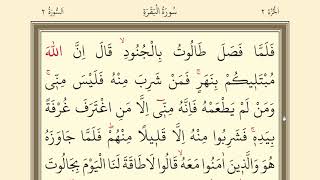 الجزء ٢
سورة البقرة
السورة ٢
فَلَمَّا فَصَلَ طَالُوتُ بِالْجُنُودِ قَالَ اِنَّ اللّٰهَ
مُبْتَلِيكُمْ بِنَهَرٍ فَمَنْ شَرِبَ مِنْهُ فَلَيْسَ مِنّ۪ى
وَمَنْ لَمْ يَطْعَمْهُ فَاِنَّهُ مِنّ۪ٓى اِلَّا مَنِ اغْتَرَفَ غُرْفَةً
بِيَدِه۪ فَشَرِبُوا مِنْهُ اِلَّا قَل۪يلًا مِنْهُمْ فَلَمَّا جَاوَزَهُ
هُوَ وَالَّذ۪ينَ اٰمَنُوا مَعَهُ قَالُوا لَا طَاقَةَ لَنَا الْيَوْمَ بِجَالُوتَ